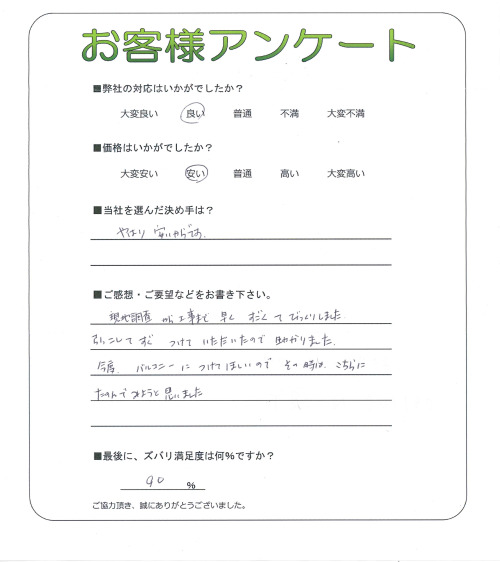 お客様アンケート
■弊社の対応はいかがでしたか?
大変良い 良い 普通 不満 大変不満
■価格はいかがでしたか?
大変安い 安い 普通 高い 大変高い
■当社を選んだ決め手は?
やはり 安いからです。
■ご感想・ご要望などをお書き下さい。
現地調査 から工事まで 早く すごくて びっくりしました
ひっこしてすぐ つけて いただいたので 助かりました。
今度 バルコニーに つけてほしいので その時は こちらに
たのんでみようと思いました
■最後に、ズバリ満足度は何%ですか?
90 %
ご協力頂き、誠にありがとうございました。